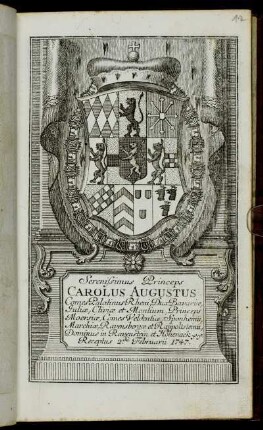 Serenissimus Princeps
CAROLUS AUGUSTUS
Comes Palatinus Rheni, Dux Bavariæ,
Juliæ, Cliviæ et Montium, Princeps
Moersiæ, Comes Veldentiæ, Sponhemii,
Marchiæ, Ravensbergæ et Rappolsteinii,
Dominus in Ravenstein et Hohenack &c
Receptus 2dâ Februarii 1747.